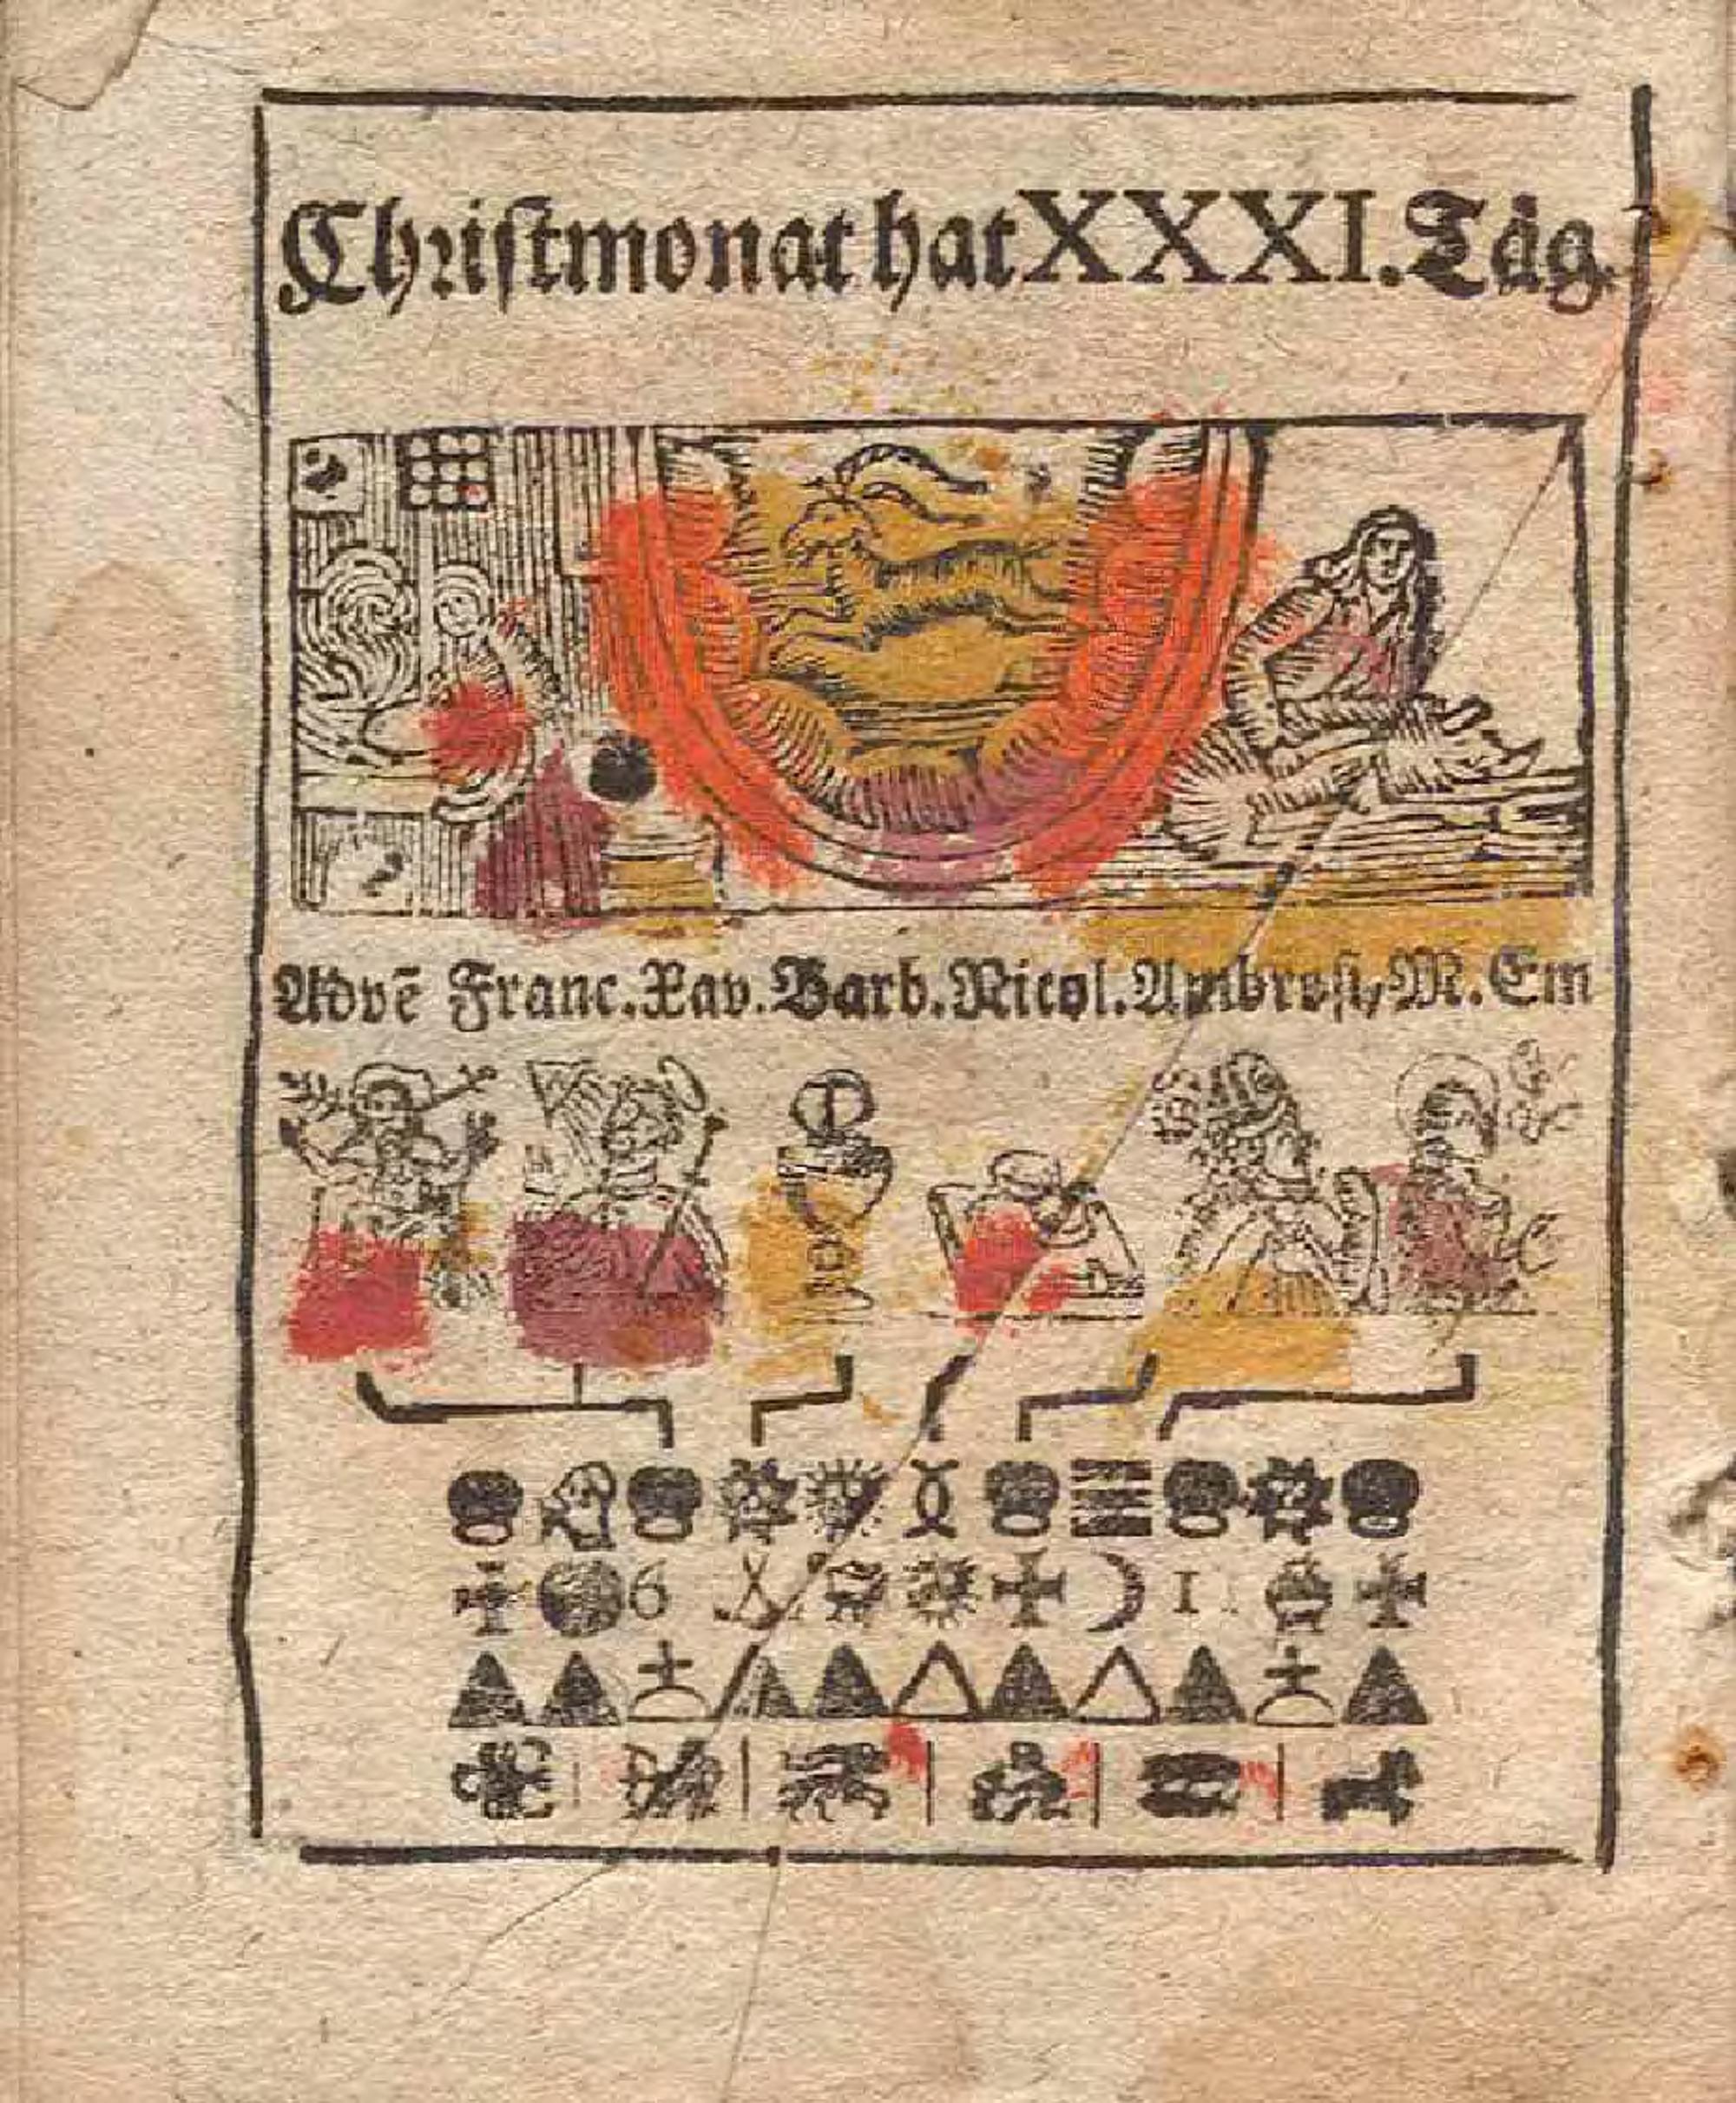 Christmonat hat XXXI. Täg.
Advē Franc. Xav. Barb. Nicol. Ambrosi, M. Em
6 I